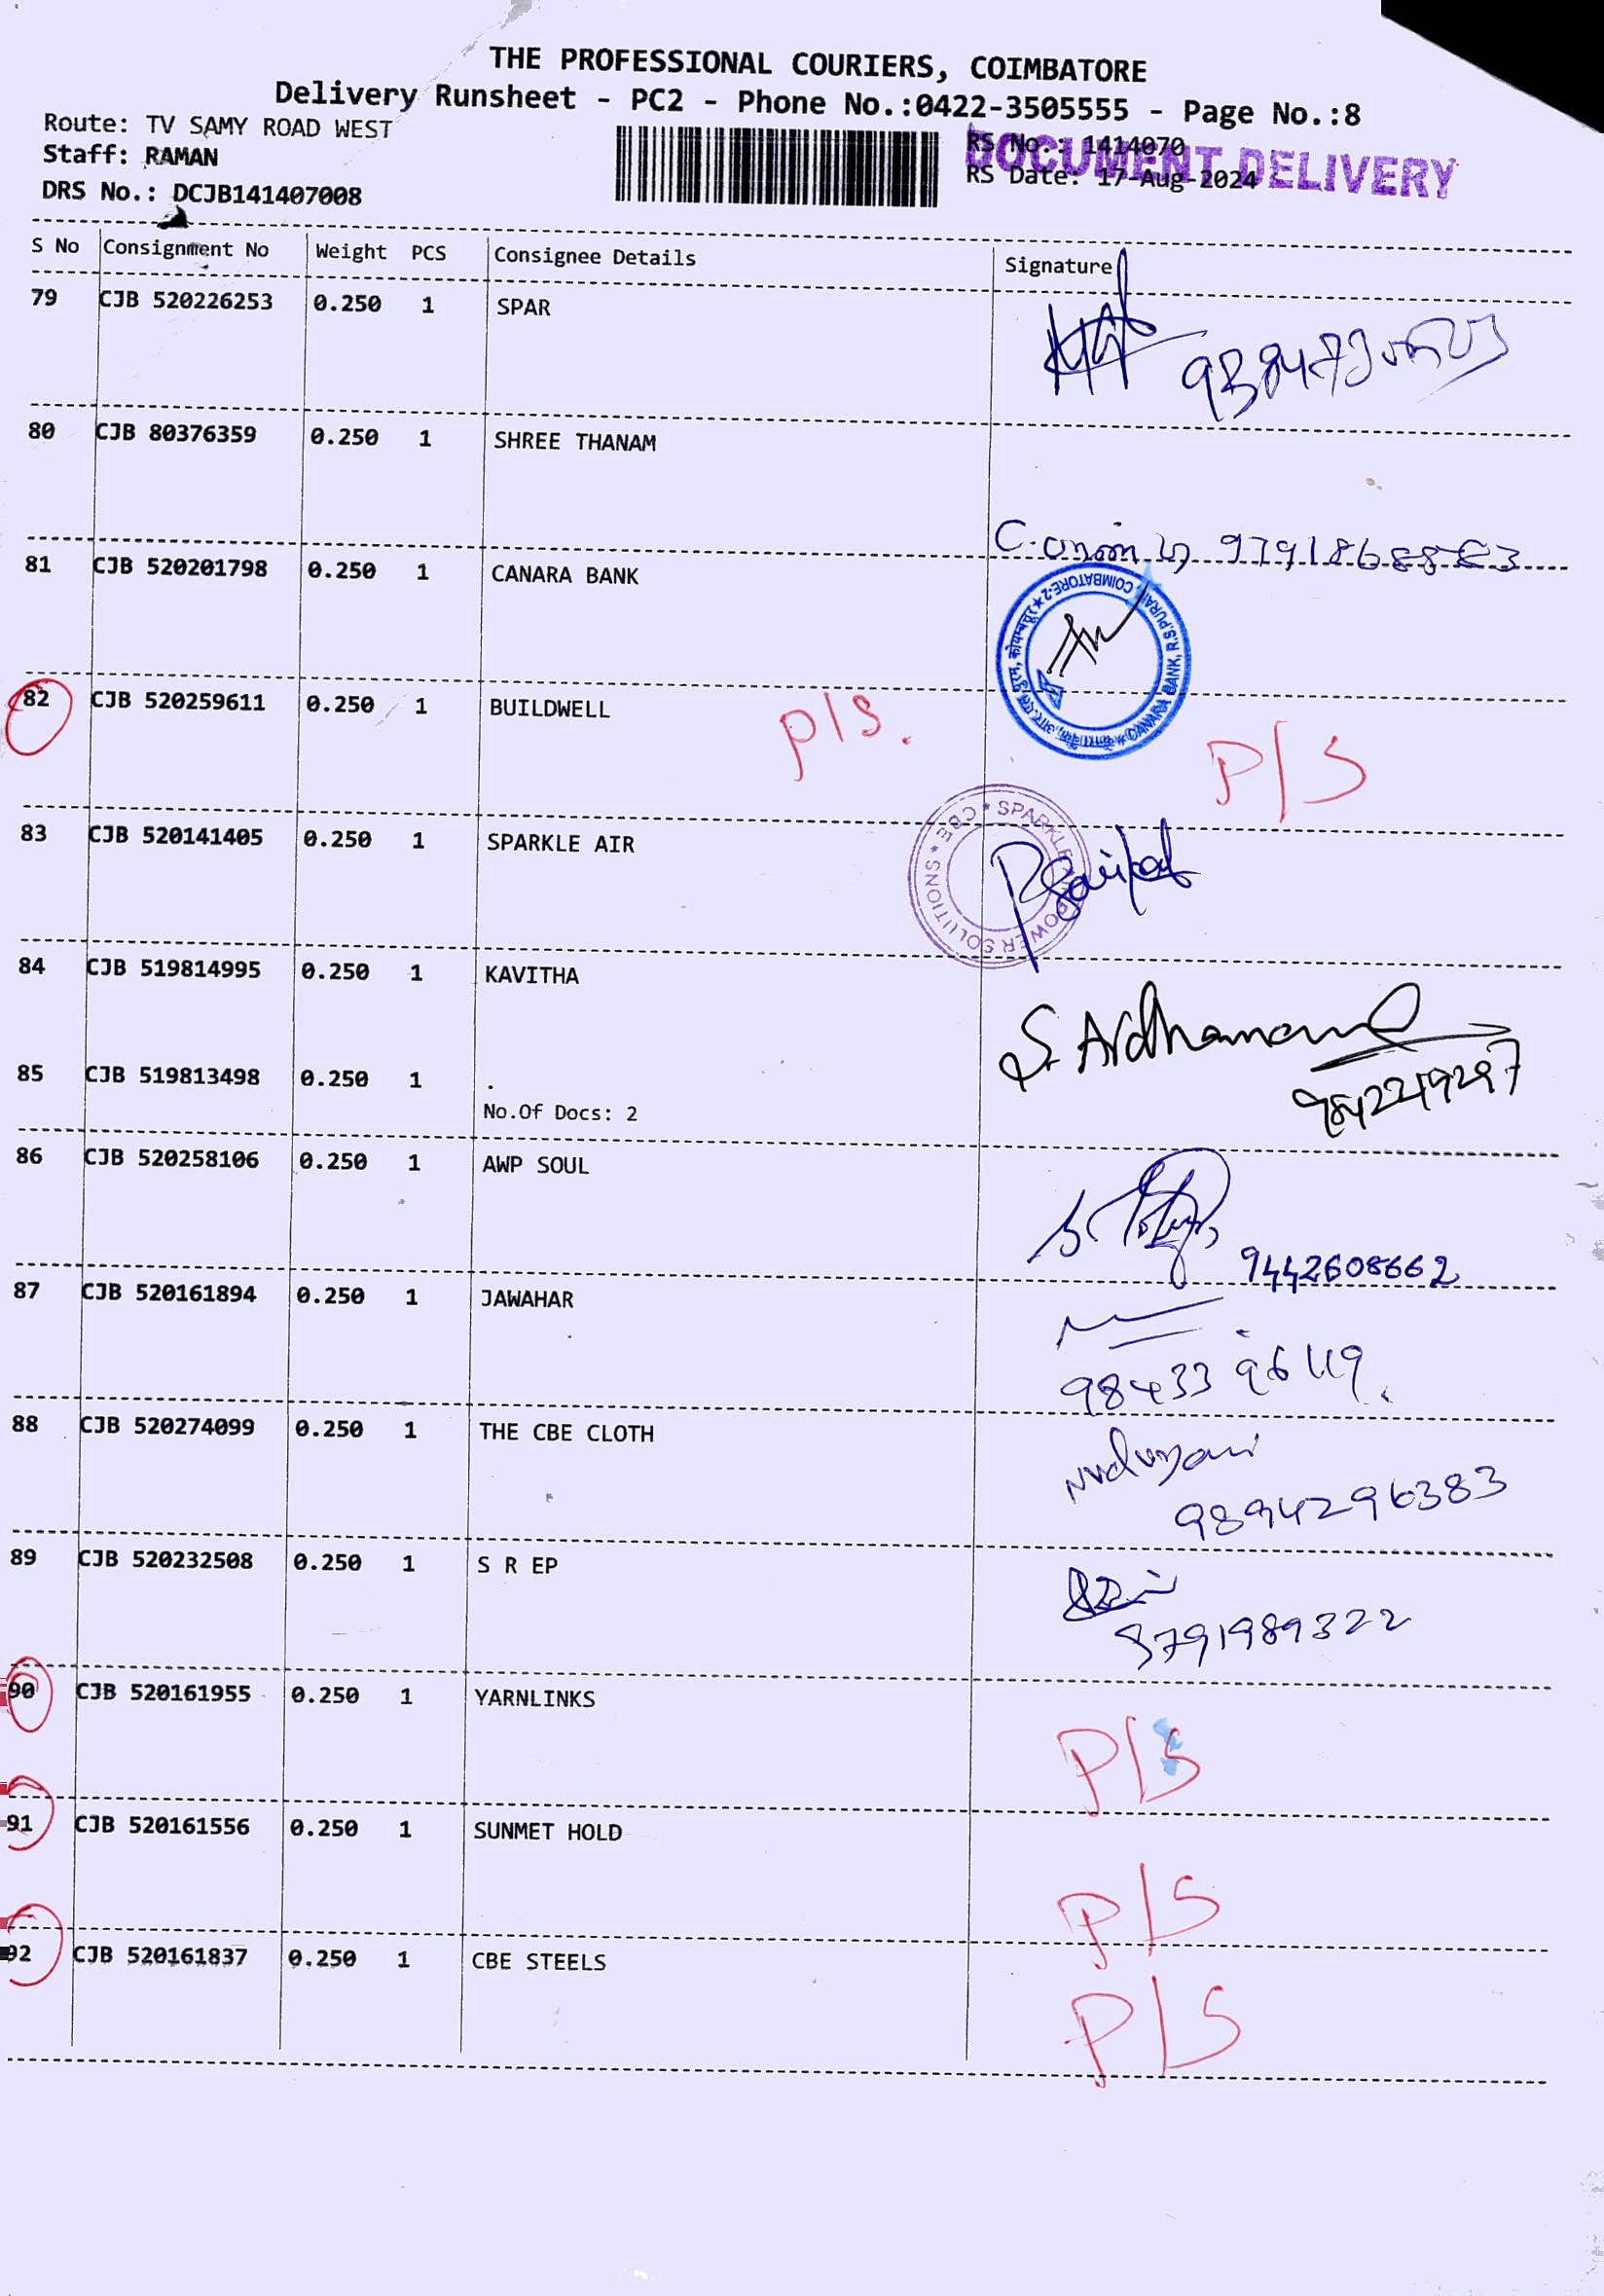 THE PROFESSIONAL COURIERS, COIMBATORE
Delivery Runsheet - PC2 - Phone No.:0422-3505555 - Page No.:8
Route: TV SAMY ROAD WEST
Staff: RAMAN
DRS No.: DCJB141407008
RS No.: 1414070
RS Date: 17-Aug-2024
DOCUMENT DELIVERY
S No Consignment No Weight PCS Consignee Details Signature
79 CJB 520226253 0.250 1 SPAR
80 CJB 80376359 0.250 1 SHREE THANAM
81 CJB 520201798 0.250 1 CANARA BANK
CANARA BANK, R.S.PURAM, COIMBATORE-2
82 CJB 520259611 0.250 1 BUILDWELL P/S. P/S
83 CJB 520141405 0.250 1 SPARKLE AIR
84 CJB 519814995 0.250 1 KAVITHA
85 CJB 519813498 0.250 1 .
No.Of Docs: 2
9842219297
86 CJB 520258106 0.250 1 AWP SOUL
9442608662
87 CJB 520161894 0.250 1 JAWAHAR
98433 96119.
88 CJB 520274099 0.250 1 THE CBE CLOTH
9894296383
89 CJB 520232508 0.250 1 S R EP
8791989322
90 CJB 520161955 0.250 1 YARNLINKS
P/S
91 CJB 520161556 0.250 1 SUNMET HOLD
P/S
92 CJB 520161837 0.250 1 CBE STEELS
P/S